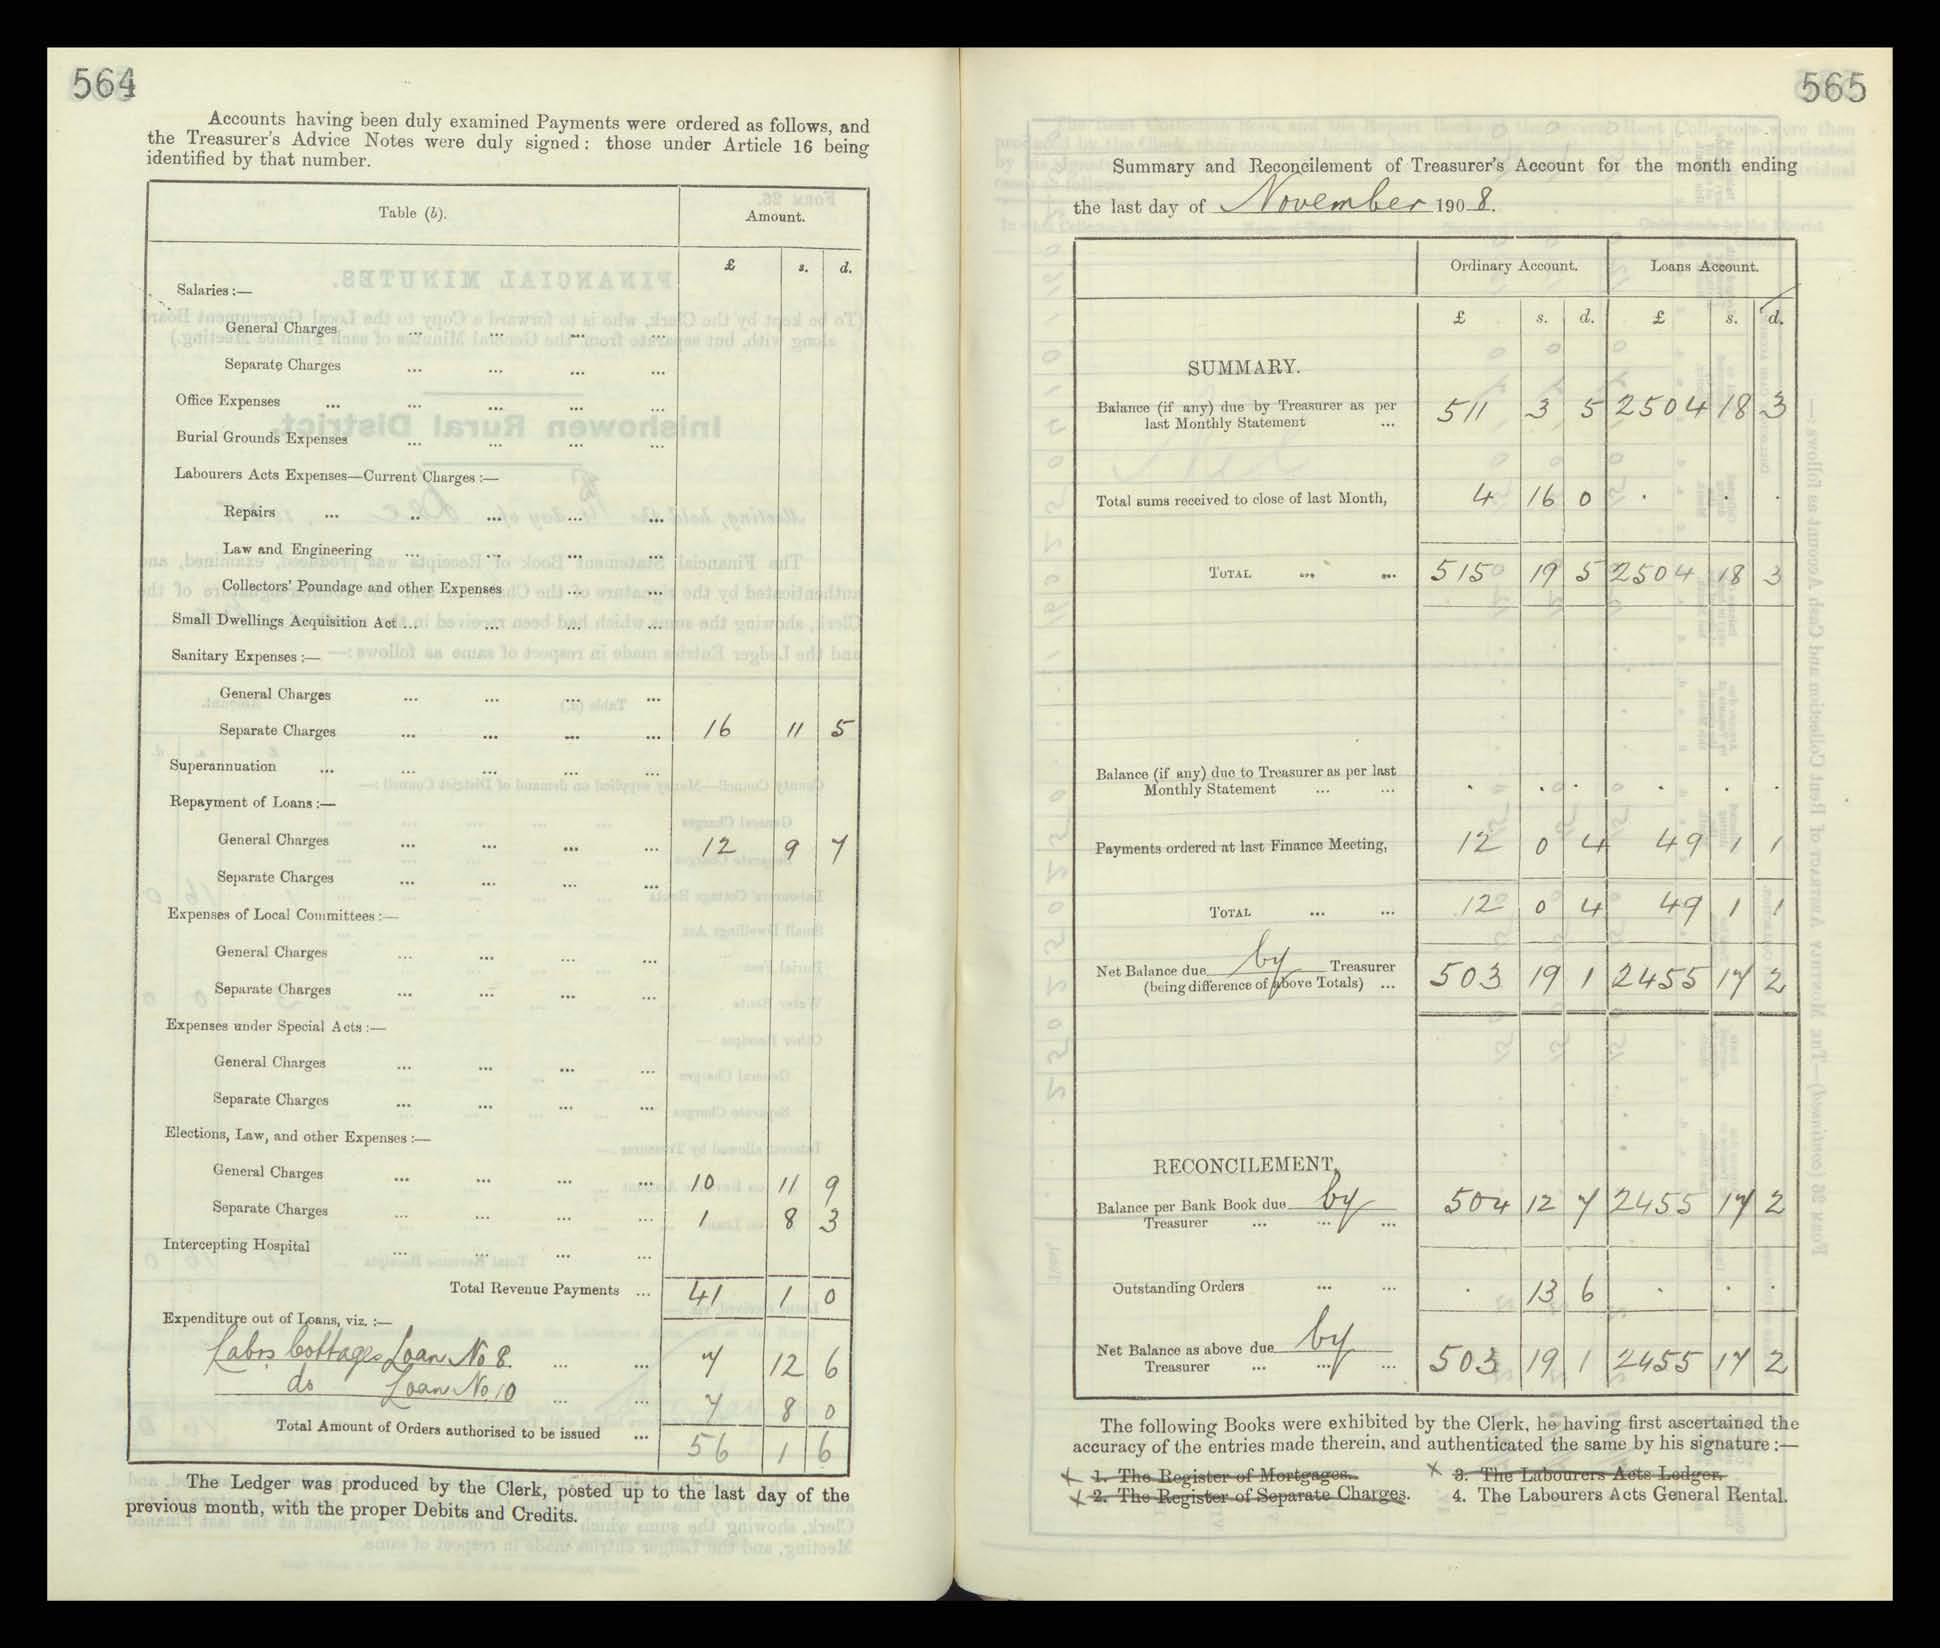 564
Accounts having been duly examined Payments were ordered as follows, and
the Treasurer's Advice Notes were duly signed: those under Article 16 being
identified by that number.
Table (b). Amount.
£ s. d.
Salaries :—
General Charges ... ... ... ...
Separate Charges ... ... ... ...
Office Expenses ... ... ... ... ...
Burial Grounds Expenses ... ... ... ...
Labourers Acts Expenses—Current Charges :—
Repairs ... ... ... ... ...
Law and Engineering ... ... ... ...
Collectors' Poundage and other Expenses ... ...
Small Dwellings Acquisition Act ... ... ... ...
Sanitary Expenses :—
General Charges ... ... ... ...
Separate Charges ... ... ... ... 16 11 5
Superannuation ... ... ... ... ...
Repayment of Loans :—
General Charges ... ... ... ... 12 9 7
Separate Charges ... ... ... ...
Expenses of Local Committees :—
General Charges ... ... ... ...
Separate Charges ... ... ... ...
Expenses under Special Acts :—
General Charges ... ... ... ...
Separate Charges ... ... ... ...
Elections, Law, and other Expenses :—
General Charges ... ... ... ... 10 11 9
Separate Charges ... ... ... ... 1 8 3
Intercepting Hospital ... ... ... ...
Total Revenue Payments ... 41 1 0
Expenditure out of Loans, viz. :—
Labrs Cottages Loan No 8. ... ... 7 12 6
do Loan No. 10 ... ... 7 8 0
Total Amount of Orders authorised to be issued ... 56 1 6
The Ledger was produced by the Clerk, posted up to the last day of the
previous month, with the proper Debits and Credits.
565
Summary and Reconcilement of Treasurer's Account for the month ending
the last day of November 1908.
Ordinary Account. Loans Account.
£ s. d. £ s. d.
SUMMARY.
Balance (if any) due by Treasurer as per
last Monthly Statement ... 511 3 5 2504 18 3
Total sums received to close of last Month, 4 16 0 . . .
TOTAL ... ... 515 19 5 2504 18 3
Balance (if any) due to Treasurer as per last
Monthly Statement ... ... . . . . . .
Payments ordered at last Finance Meeting, 12 0 4 49 1 1
TOTAL ... ... 12 0 4 49 1 1
Net Balance due by Treasurer
(being difference of above Totals) ... 503 19 1 2455 17 2
RECONCILEMENT.
Balance per Bank Book due by
Treasurer ... ... ... 504 12 7 2455 17 2
Outstanding Orders ... ... . 13 6 . . .
Net Balance as above due by
Treasurer ... ... ... 503 19 1 2455 17 2
The following Books were exhibited by the Clerk, he having first ascertained the
accuracy of the entries made therein, and authenticated the same by his signature :—
x 1. The Register of Mortgages. x 3. The Labourers Acts Ledger.
x 2. The Register of Separate Charges. 4. The Labourers Acts General Rental.